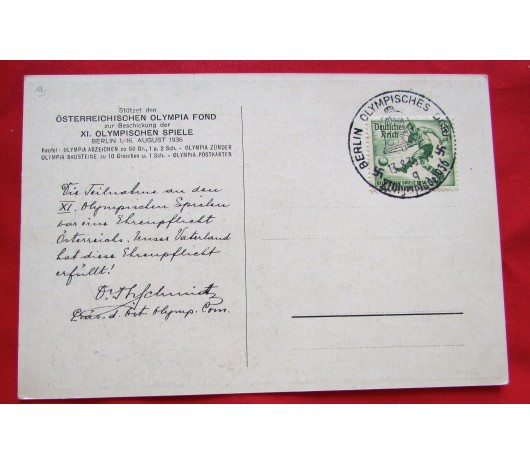 Stützet den
ÖSTERREICHISCHEN OLYMPIA FOND
zur Beschickung der
XI. OLYMPISCHEN SPIELE
BERLIN 1.-16. AUGUST 1936
Kaufet: OLYMPIA ABZEICHEN zu 50 Gr., 1 u. 2 Sch. - OLYMPIA ZÜNDER
OLYMPIA BAUSTEINE zu 10 Groschen u. 1 Sch. - OLYMPIA POSTKARTEN
Die Teilnahme an den
XI. Olympischen Spielen
war eine Ehrenpflicht
Österreichs. Unser Vaterland
hat diese Ehrenpflicht
erfüllt!
Dr. Schmidt
Präs. d. Öst. Olymp. Com.
BERLIN OLYMPISCHES DORF
Deutsches
Reich